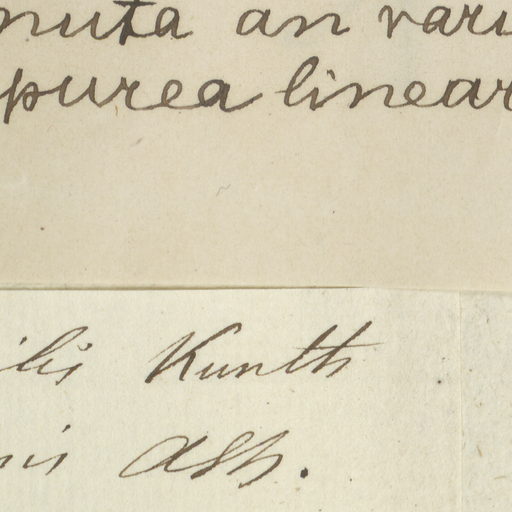 nuta an vari
purea linear
ilis Kunth
nis Ash.